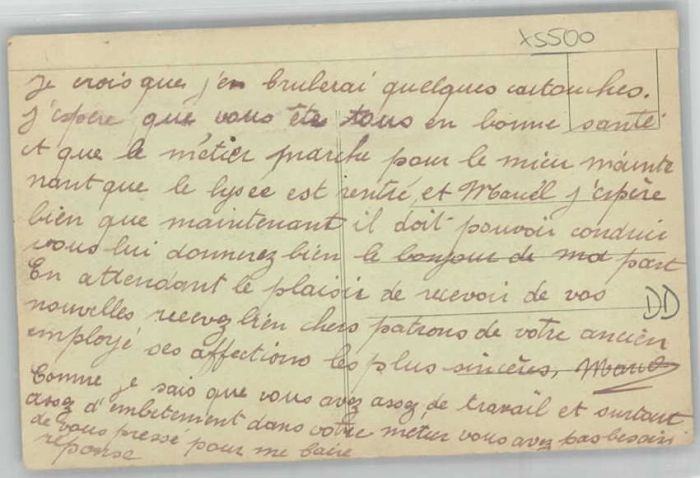 x5500
Je crois que j'en brulerai quelques cartouches.
J'espère que vous ête tous en bonne santé
et que le métier marche pour le mieu mainte
nant que le lysee est rentré, et Marcel j'espère
bien que maintenant il doit pouvoir conduir
vous lui donnerez bien le bonjour de ma part
En attendant le plaisir de recevoir de vos
DD
nouvelles recevez bien chers patrons de votre ancien
employé ses affections les plus sincères,
Comme je sais que vous avez assez de travail et surtout
assez d'embetement dans votre metier vous avez pas besoin
de vous presse pour me faire
reponse